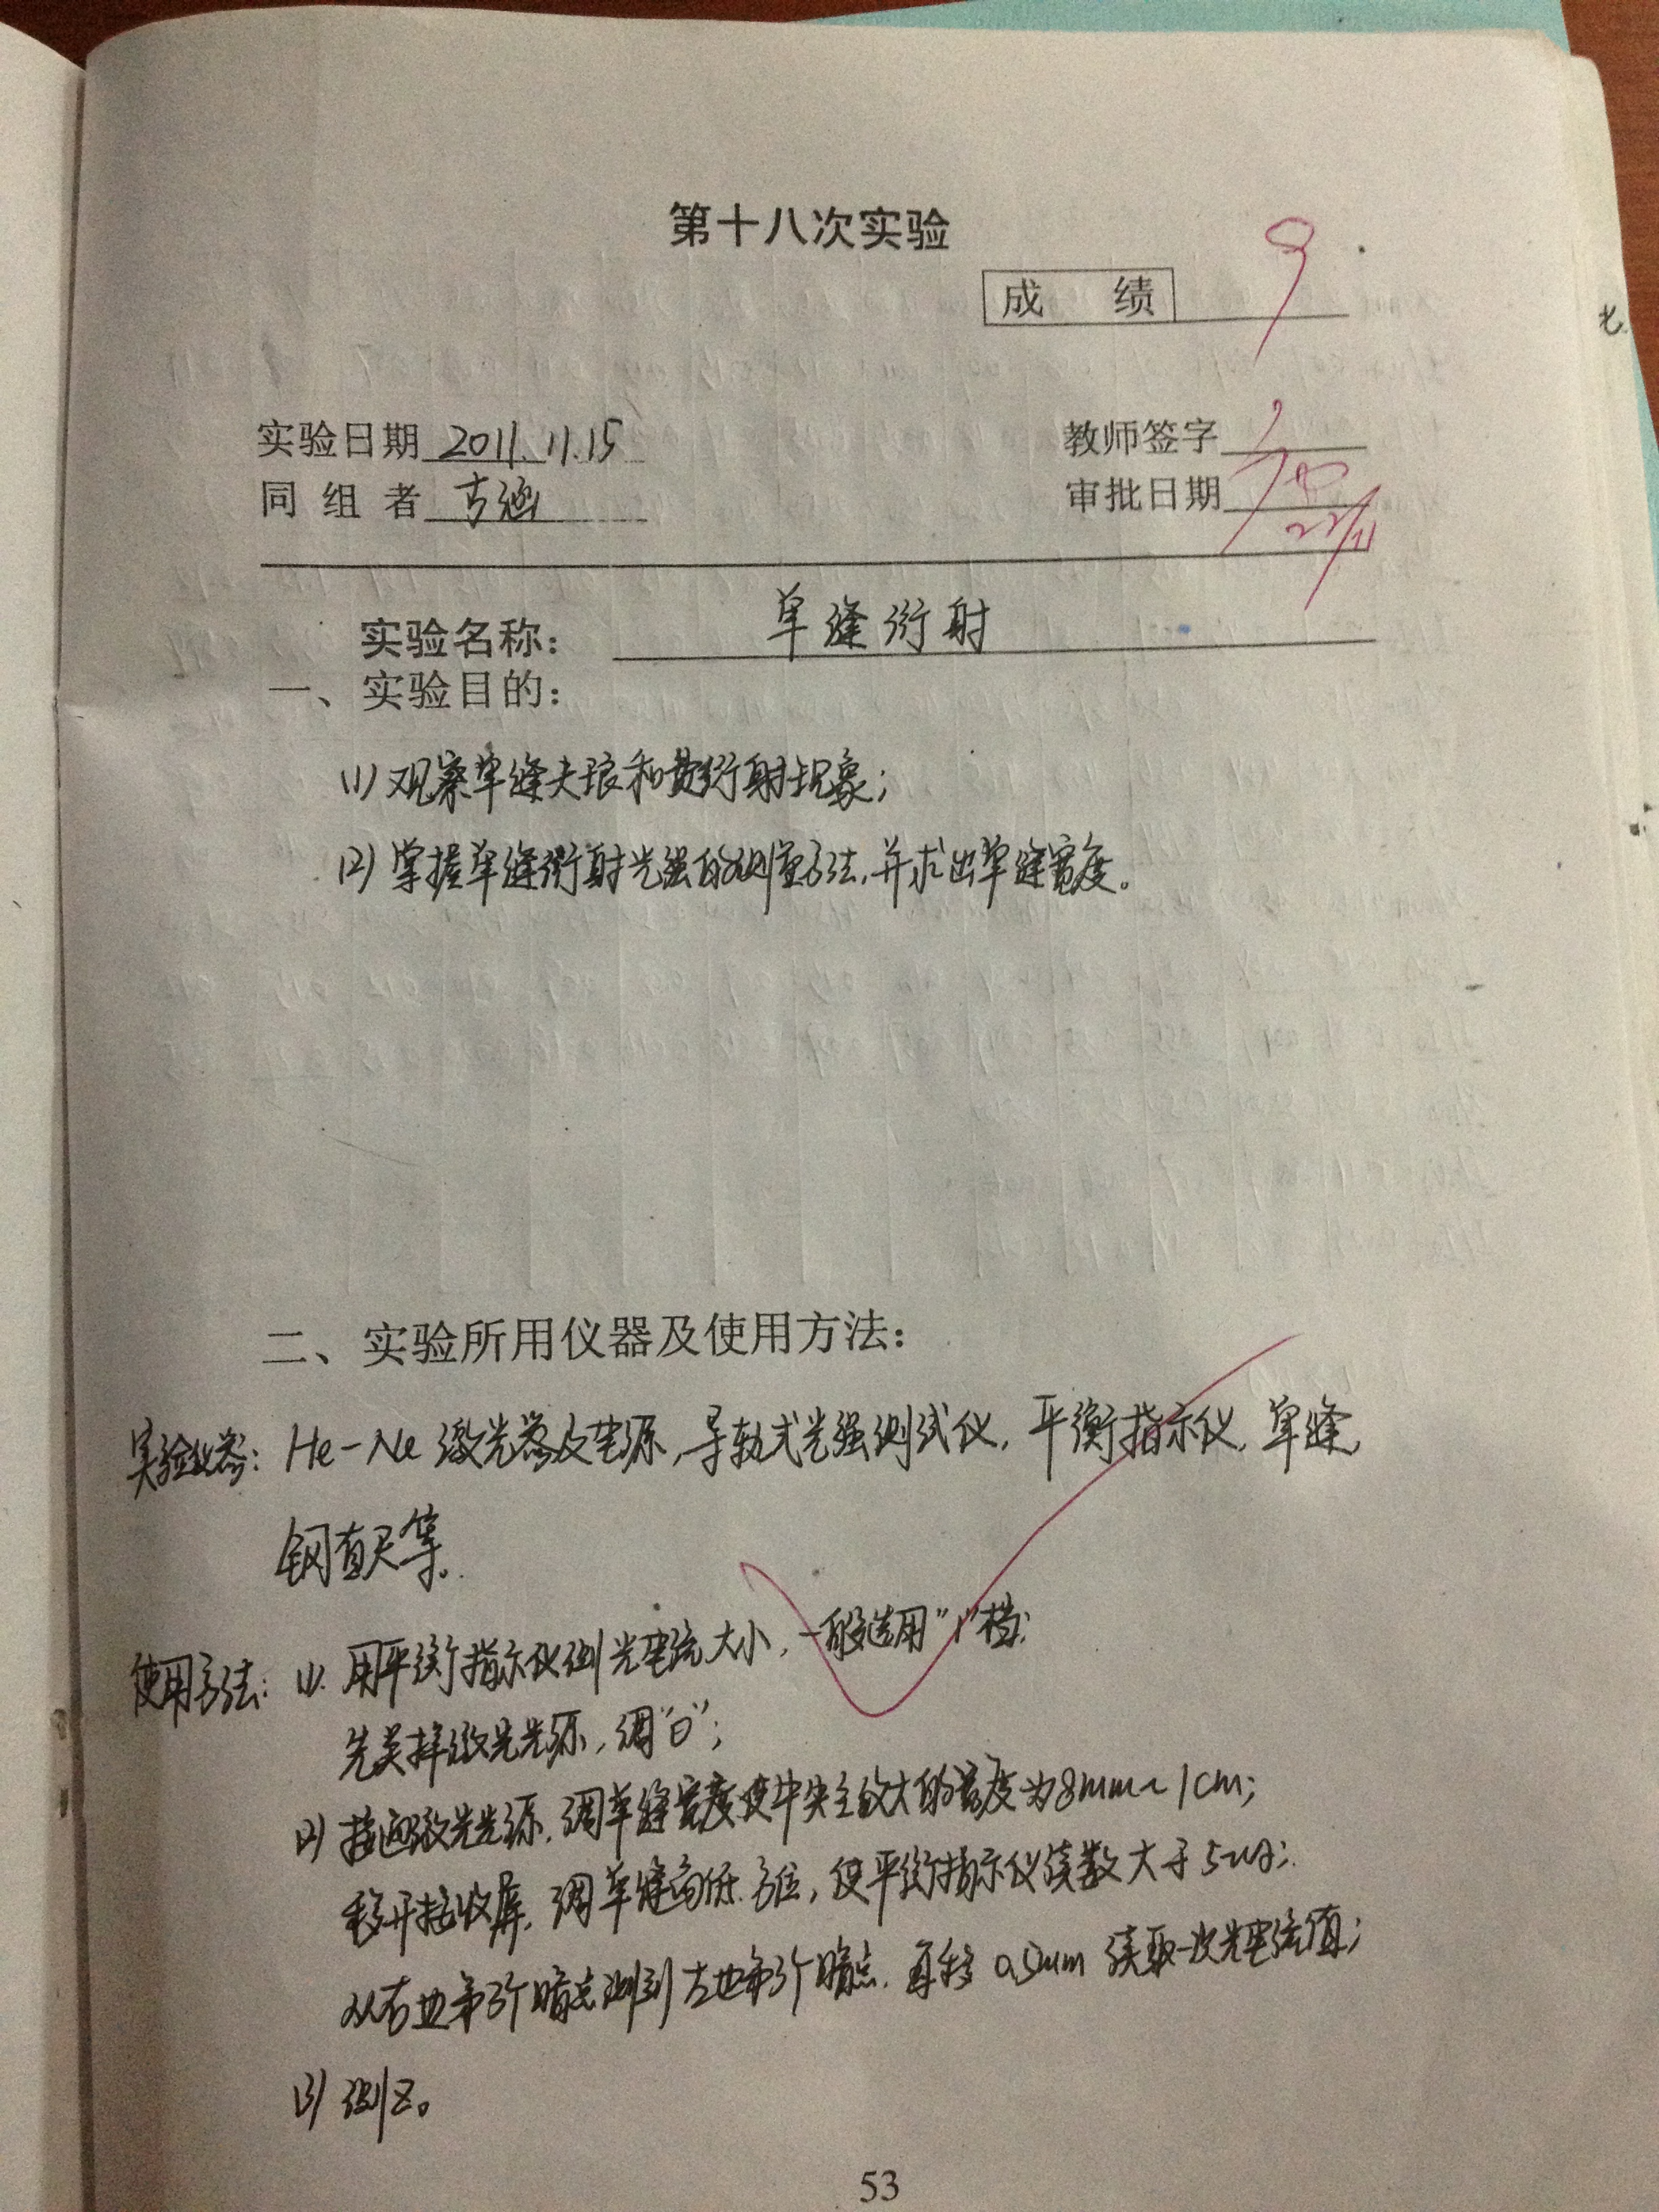 第十八次实验
成 绩 9
实验日期 2011.11.15
教师签字
同 组 者
审批日期 22/11
实验名称: 单缝衍射
一、实验目的:
(1) 观察单缝夫琅和费衍射现象;
(2) 掌握单缝衍射光强的测量方法,并求出单缝宽度。
二、实验所用仪器及使用方法:
实验仪器: He-Ne 激光器及电源,导轨式光强测试仪,平衡指示仪,单缝,
钢直尺等.
使用方法: (1). 用平衡指示仪测光电流大小,一般选用"1"档;
先关掉激光光源,调"0";
(2) 接通激光光源,调单缝宽度使中央主极大的宽度为8mm~1cm;
移开接收屏,调单缝高低.方位,使平衡指示仪读数大于
从右边第3个暗点测到左边第3个暗点,每移 0.5mm 读取一次光电流值;
(3) 测Z。
53